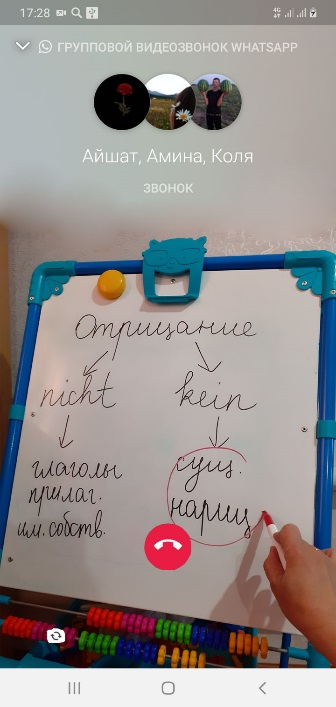 17:28
4G
ГРУППОВОЙ ВИДЕОЗВОНОК WHATSAPP
Айшат, Амина, Коля
ЗВОНОК
Отрицание
nicht kein
глаголы сущ.
прилаг. нариц
им. собств.